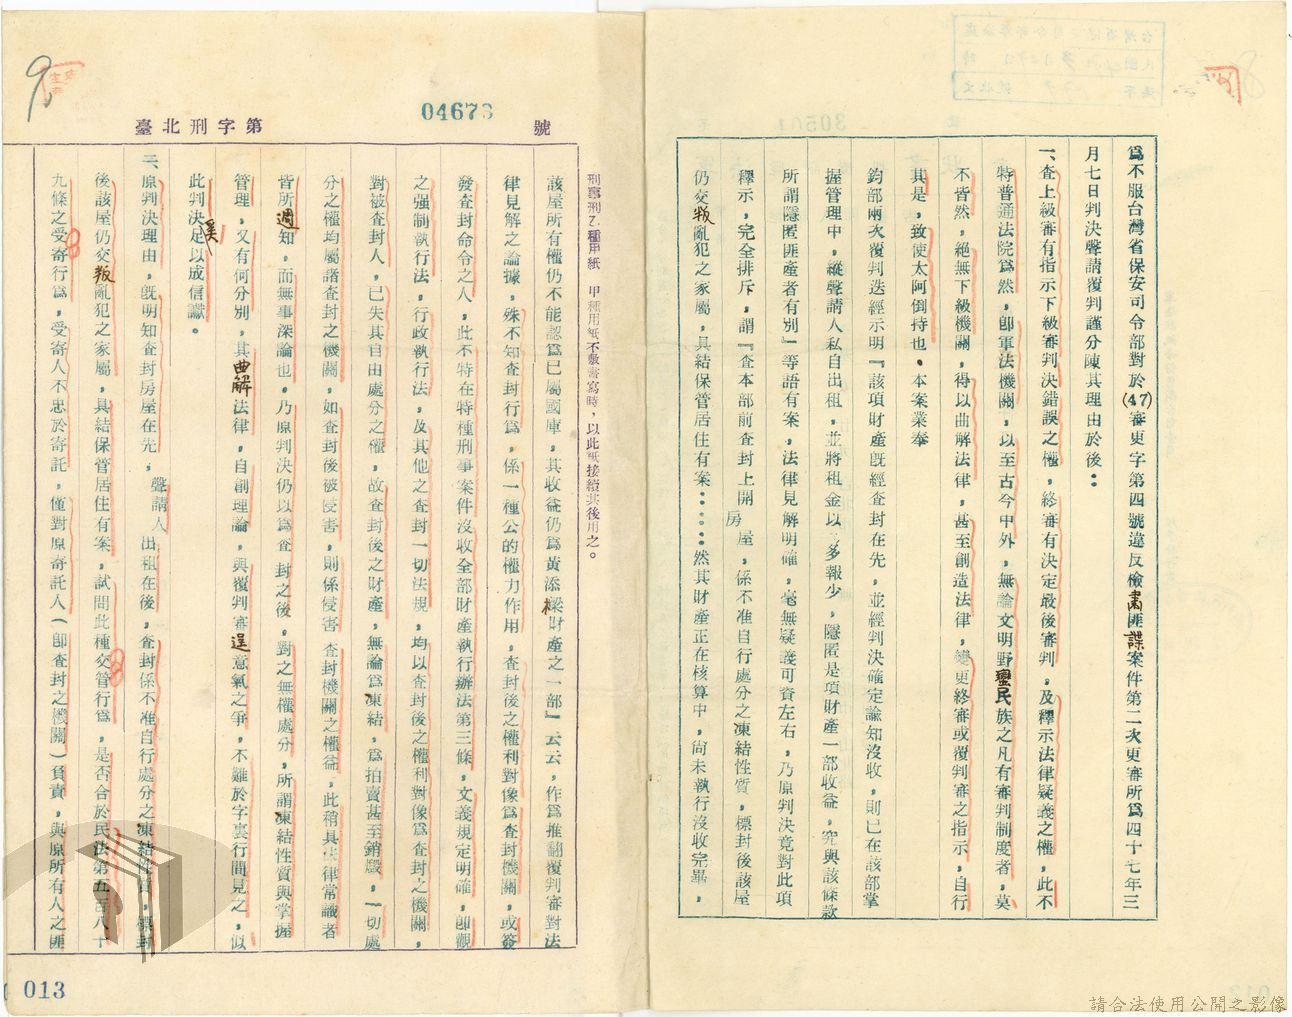 為不服台灣省保安司令部對於(47)審更字第四號違反檢肅匪諜案件第二次更審所為四十七年三
月七日判決聲請覆判謹分陳其理由於後：
一、查上級審有指示下級審判決錯誤之權，終審有決定最後審判，及釋示法律疑義之權，此不
特普通法院為然，即軍法機關，以至古今中外，無論文明野蠻民族之凡有審判制度者，莫
不皆然，絕無下級機關，得以曲解法律，甚至創造法律，變更終審或覆判審之指示，自行
其是，致使太阿倒持也。本案業奉
鈞部兩次覆判迭經示明『該項財產既經查封在先，並經判決確定諭知沒收，則已在該部掌
握管理中，縱聲請人私自出租，並將租金以多報少，隱匿是項財產一部收益，究與該條款
所謂隱匿匪產者有別』等語有案，法律見解明確，毫無疑義可資左右，乃原判決竟對此項
釋示，完全排斥，謂『查本部前查封上開房屋，係不准自行處分之凍結性質，標封後該屋
仍交叛亂犯之家屬，具結保管居住有案……然其財產正在核算中，尚未執行沒收完畢，
臺北刑字第 04673 號
刑事刑乙種用紙　甲種用紙不敷書寫時，以此紙接續其後用之。
該屋所有權仍不能認為已屬國庫，其收益仍為黃添樑財產之一部』云云，作為推翻覆判審對法
律見解之論據，殊不知查封行為，係一種公的權力作用，查封後之權利對像為查封機關，或簽
發查封命令之人，此不特在特種刑事案件沒收全部財產執行辦法第三條，文義規定明確，即觀
之强制執行法，行政執行法，及其他之查封一切法規，均以查封後之權利對像為查封之機關，
對被查封人，已失其自由處分之權，故查封後之財產，無論為凍結，為拍賣甚至銷毀，一切處
分之權均屬諸查封之機關，如查封後被侵害，則係侵害查封機關之權益，此稍具法律常識者
皆所週知，而無事深論也，乃原判決仍以為查封之後，對之無權處分，所謂凍結性質與掌握
管理，又有何分別，其曲解法律，自創理論，與覆判審逞意氣之爭，不難於字裏行間見之，似
此判決奚足以成信讞。
二、原判決理由，既明知查封房屋在先，聲請人出租在後，查封係不准自行處分之凍結性質，標封
後該屋仍交叛亂犯之家屬，具結保管居住有案，試問此種交管行為，是否合於民法第五百八十
九條之受寄行為，受寄人不忠於寄託，僅對原寄託人（即查封之機關）負責，與原所有人之匪
013
請合法使用公開之影像